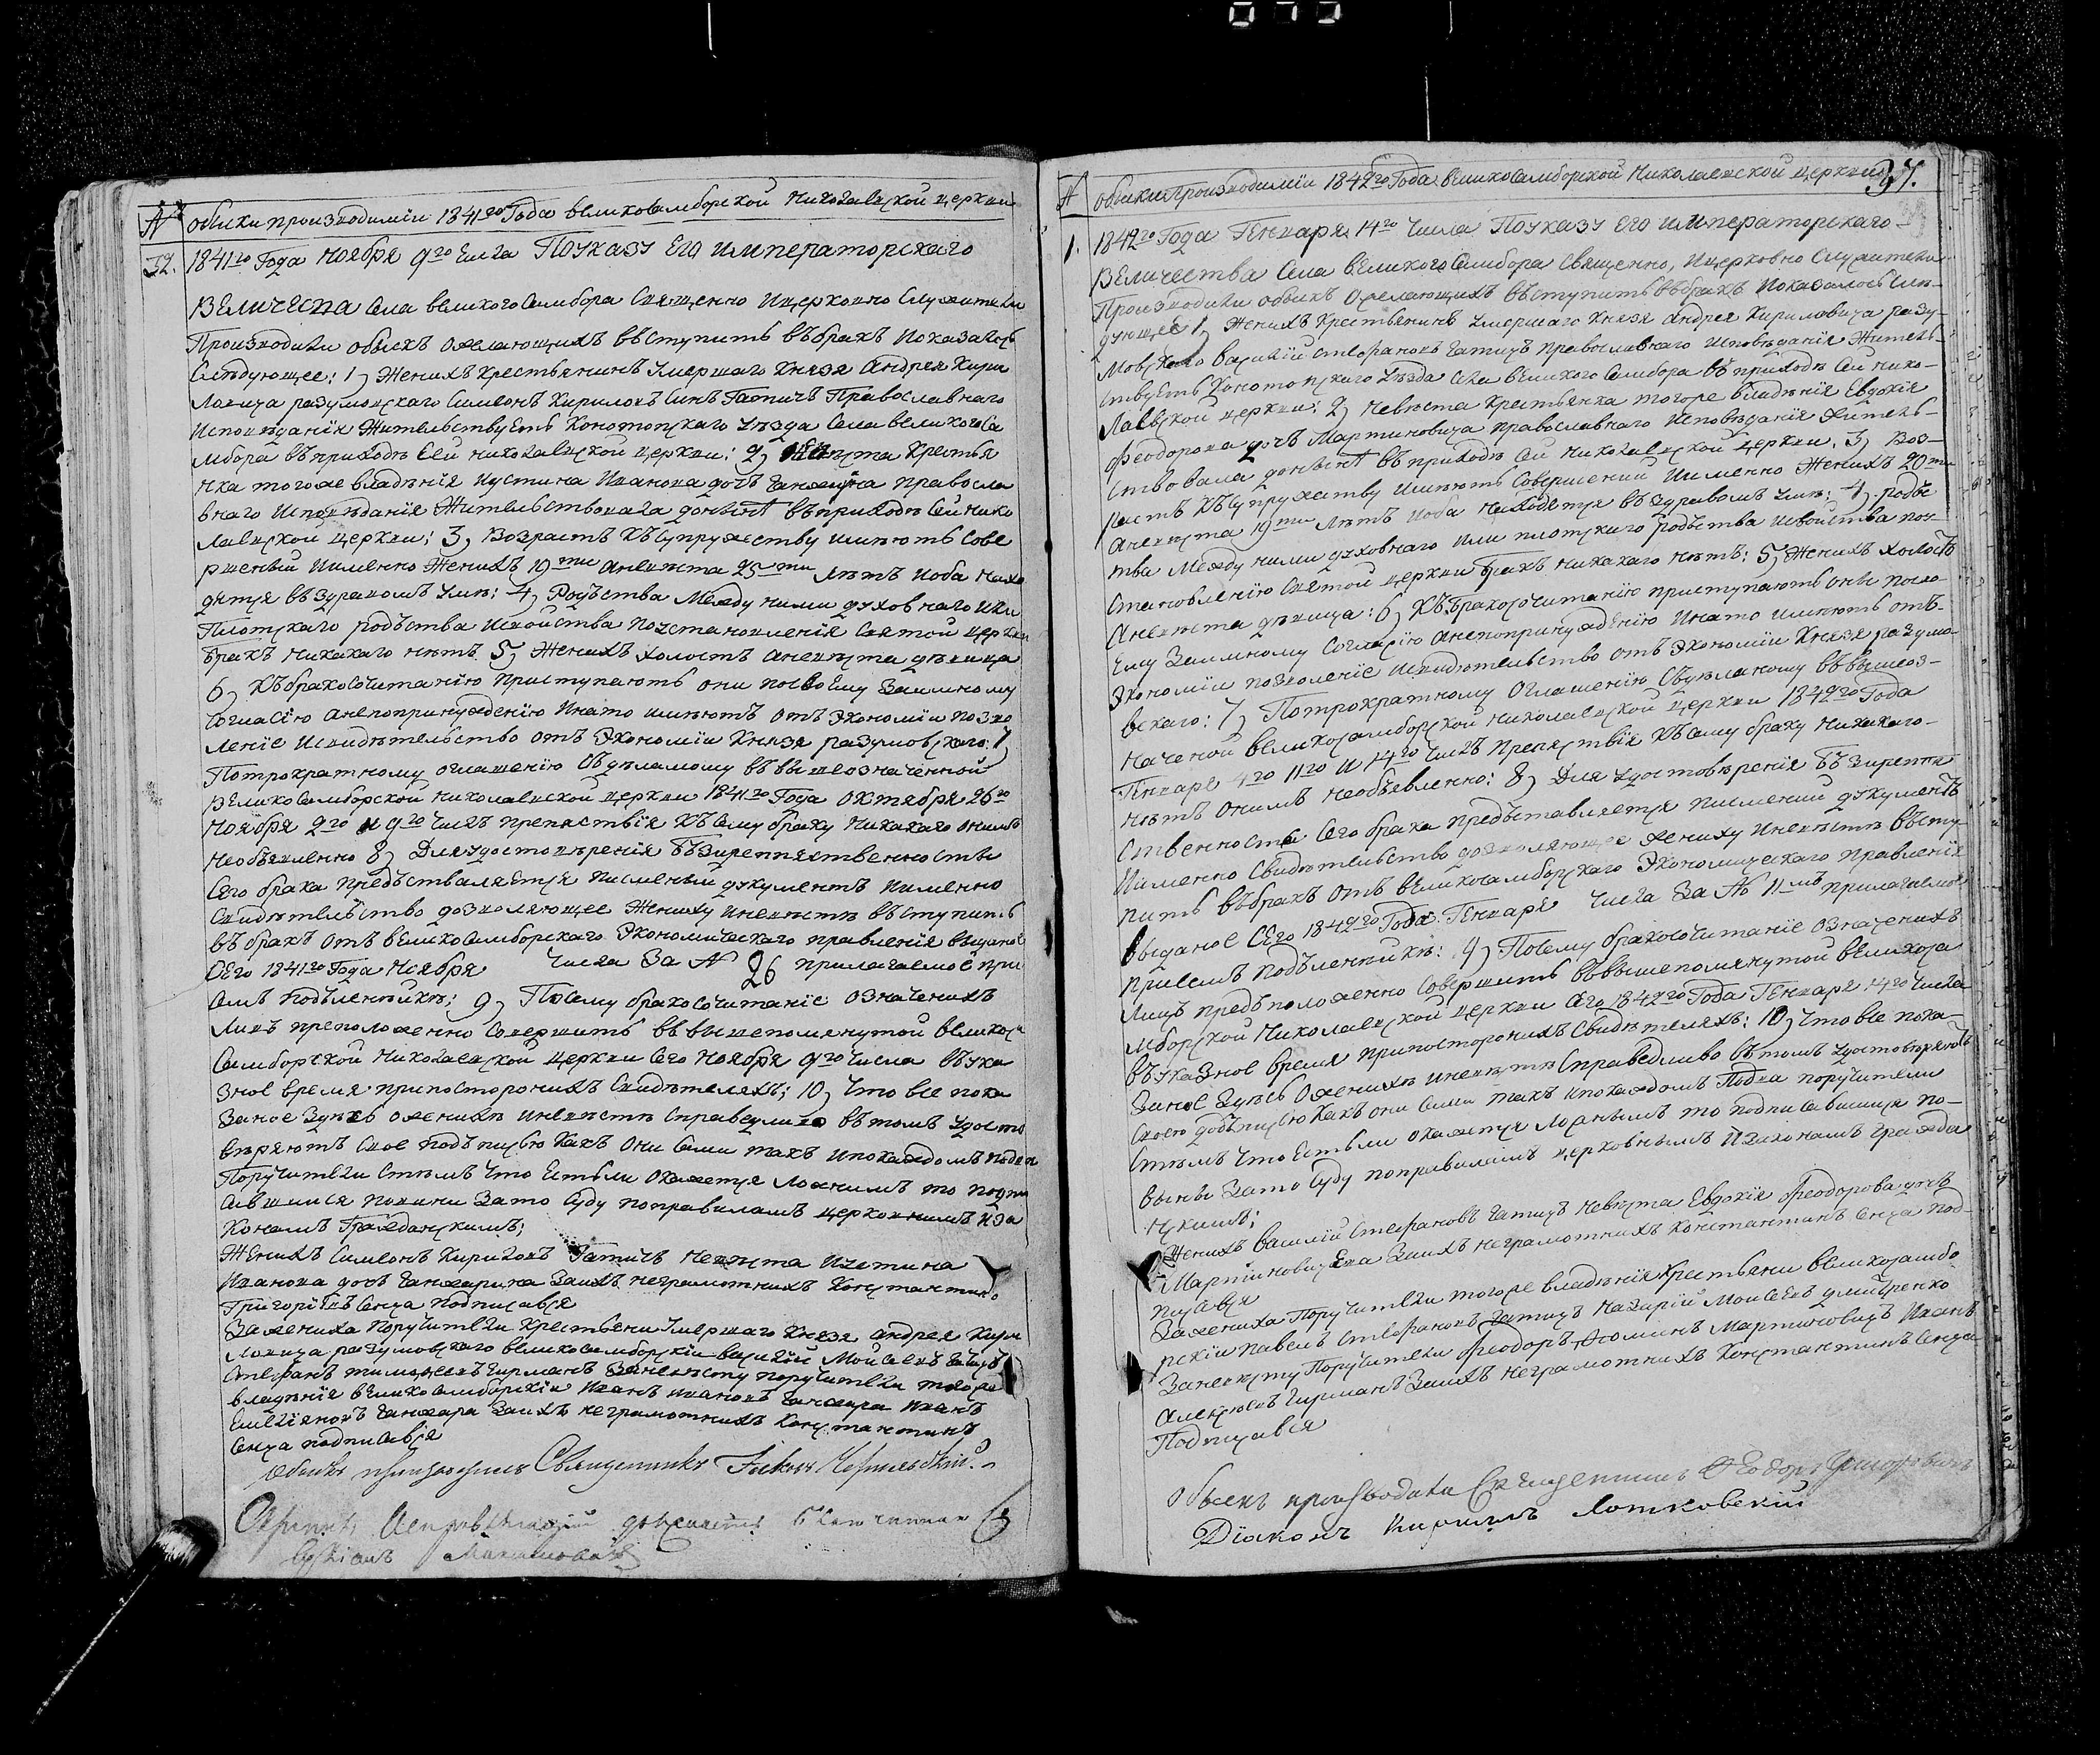 № обыски производимiи 1841го Года великосамборской Николаевской церкви
32. 1841го Года Ноября 9го Числа Поуказу Его императорскаго
Величества Села великого Самбора Священно Ицерковно Служители
Производили обыскъ Ожелающихъ въступить въбракъ Ипоказалось
Слѣдующее: 1, Женихъ Крестьянинъ Умершаго Князя Андрея Кири
Ловича разумовскаго Симеонъ Кириловъ Синъ Гатичъ Православнаго
Исповѣданiя Жительствуетъ Конотопскаго Уѣзда Села великого Са
мбора въприходѣ Сей николаевской церкви: 2, Невѣста Крестья
нка тогоже владѣнiя Иустина Иванова дочъ Ганжарина правосла
внаго Исповѣданiя Жительствовала донынѣ въприходѣ Сей Нико
лаевской церкви: 3, Возрастъ Къ Супружеству имѣютъ Сове
ршеный Именно Женихъ 19ти Аневѣста 25ти лѣтъ Иоба Нахо
дятся въздравомъ Умѣ: 4, Родъства Между ними духовнаго Или
Плотскаго родъства Исвойства поустановленiя Святой церкви
бракъ Никакаго нѣтъ 5, Женихъ холостъ аневѣста дѣвица
6, Къбракосочитанiю приступаютъ они посвоему Взаимному
Согласiю анепопринужденiю Инато имѣютъ отъ Экономiи позво
ленiе Исвидѣтельство отъ Экономiи Князя разумовскаго: 7,
Потрократному оглашенiю Съдѣламому въвышеозначенной
Великосамборской николаевской церкви 1841го Года Октября 26го
Ноября 2го и 9го Числъ препяствiя Къ Сему браку Никакаго онимъ
Необъявленно 8, Для удостовѣренiя Бѣзпрепятственности
Сего брака предъстваляется писменый документъ Именно
Свидѣтельство дозволяющее Жениху Иневѣстѣ въступить
въ бракъ отъ великосамборскаго Экономическаго правленiя выданое
Сего 1841го Года Ноября Числа За № 26 прилагаемое при
Семъ подъленникѣ: 9, Посему бракосочитанiе Означенихъ
Лицъ преположенно Совершить въвышепомянутой велико
Самборской Николаевской церкви Сего Ноября 9го Числа въука
зное время припостороннихъ Свидѣтеляхъ: 10, Что все пока
Заное Здѣсь Оженихѣ Иневѣстѣ Справедливо въ томъ Удосто
вѣряютъ Свое Подъписью Какъ Они Сами такъ Ипокаждомъ подва
Поручители Стѣмъ Что Естьли Окажется Ложнимъ то подпи
Савшимся повини Зато Суду поправиламъ церковнимъ Иза
Конамъ Гражданскимъ;
Женихъ Симеонъ Кириловъ Гатичъ Невѣста Иустина
Иванова дочъ Ганжарина Заихъ неграмотнихъ Константинъ
Григорiевъ Сенча подписався
Зажениха Поручители Крестьяни Умершаго Князя андрея Кири
ловича разумовскаго великосамборскiи василiй Моисеевъ Гатичъ
Стефанъ тимофеевъ Гирманъ Заневѣсту поручители тогоже
владѣнiя великосамборскiи Иванъ Ивановъ Ганжара Иванъ
Емелiяновъ Ганжара Заихъ неграмотнихъ Константинъ
Сенча подписався
Обыскъ производилъ Священникъ

№ обыски Производимiи 1842го Года великосамборской Николаевской церкви 37.
1. 1842го Года Генваря 14го Числа Поуказу Его императорскаго
Величества Села великого Самбора Священно, Ицерковно Служители
Производили обыскъ Ожелающихъ въступить въбракъ Ипоказалось Слѣ-
дующее 1, Женихъ Крестьянинъ Умершаго Князя Андрея Кириловича разу-
мовскаго Василiй Стефановъ Гатичъ православнаго Исповѣданiя Житель-
ствуетъ Конотопскаго Уѣзда Села великого Самбора въприходѣ Сей нико-
лаевской церкви: 2, Невѣста Крестьянка тогоже владѣнiя Евдокiя
Феодорова дочъ Мартиновича православнаго Исповѣданiя Житель-
ствовала донынѣ въприходѣ Сей Николаевской церкви. 3, Воз-
растъ Къ Супружеству имѣютъ Совершений Именно Женихъ 20ти
Аневѣста 19ти лѣтъ Иоба Находятся въздравомъ умѣ: 4, родъс
тва Между ними духовнаго Или плотскаго родъства Исвойства поу-
становленiю Святой церкви бракъ Никакаго нѣтъ: 5, Женихъ холостъ
Аневѣста дѣвица: 6, Къбракосочитанiю приступаютъ они посво-
ему Взаимному Согласiю анепопринужденiю Инато имѣютъ отъ-
Экономiи позволенiе Исвидѣтельство отъ Экономiи Князя разумо-
вскаго: 7, Потрократному Оглашенiю Съдѣланому въвышеоз-
наченой великосамборской николаевской церкви 1842го Года
Генваря 4го 11го и 14го Числъ Препяствiя Къ Сему браку Никакаго-
Нѣтъ Онимъ Необъявленно: 8, Для Удостовѣренiя Бѣзпрепя
ственности Сего брака предъставляется писмений документъ
Именно Свидѣтельство дозволяющее жениху Иневѣстѣ въсту
пить въбракъ отъ великосамборскаго Экономическаго правленiя
Выданое Сего 1842го Года Генваря Числа За № 11мъ прилагаемое
присемъ подъленникѣ: 9, Посему бракосочитанiе означенихъ
Лицъ предъположенно Совершить въвышепомянутой великоса
мборской Николаевской церкви Сего 1842го Года Генваря 14го Числа
въуказное время припосторонихъ Свидѣтеляхъ: 10, Что все пока-
Заное Здѣсь Оженихѣ Иневѣстѣ Справедливо въ томъ Удостовѣряютъ
Своею подъписью Какъ они Сами такъ Ипокаждомъ Подва поручители
Стѣмъ Что Естьли Окажется Ложнымъ то подписавшиися по-
вины Зато Суду поправиламъ церковнымъ Изаконамъ Гражда
нскимъ;
Женихъ Василiй Стефановъ Гатичъ Невѣста Евдокiя Феодорова дочъ
Мартиновичева Заихъ неграмотнихъ Константинъ Сенча под-
писався
Зажениха Поручители тогоже владѣнiя Крестьяни великосамбо
рскiи Павелъ Стефановъ Гатичъ Назарiй Моисеевъ дмитренко
Заневѣсту Поручители Феодоръ Фоминъ Мартиновичъ Иванъ
Алексѣевъ Гирманъ Заихъ неграмотнихъ Константинъ Сенча
Подписався
Обыскъ производили Священникъ Феодоръ
Дiаконъ Кириллъ Лотковскiй